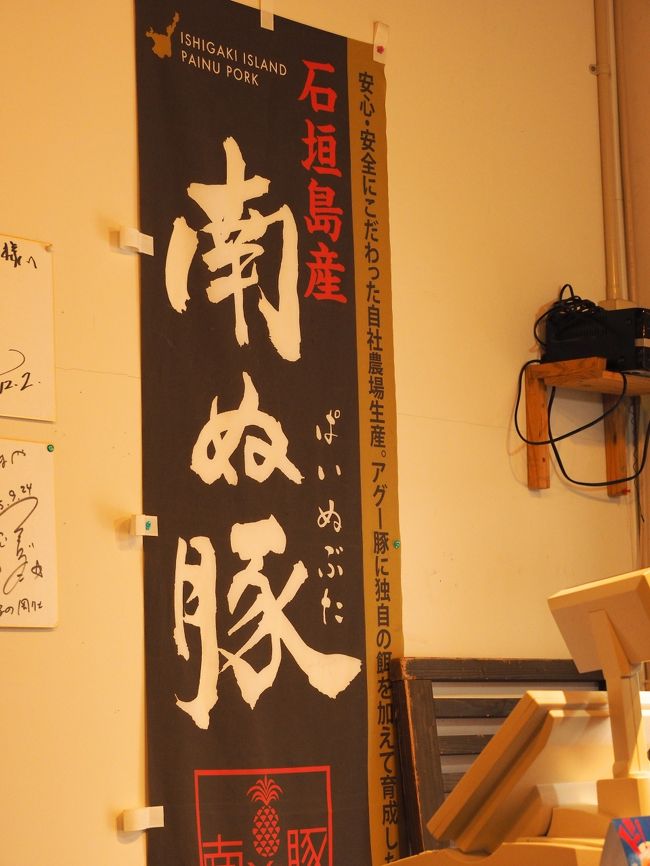 ISHIGAKI ISLAND
PAINU PORK
安心・安全にこだわった自社農場生産。アグー豚に独自の餌を加えて育成した
石垣島産
南ぬ豚
ぱいぬぶた
南ぬ豚
様へ
12.2.
9.24